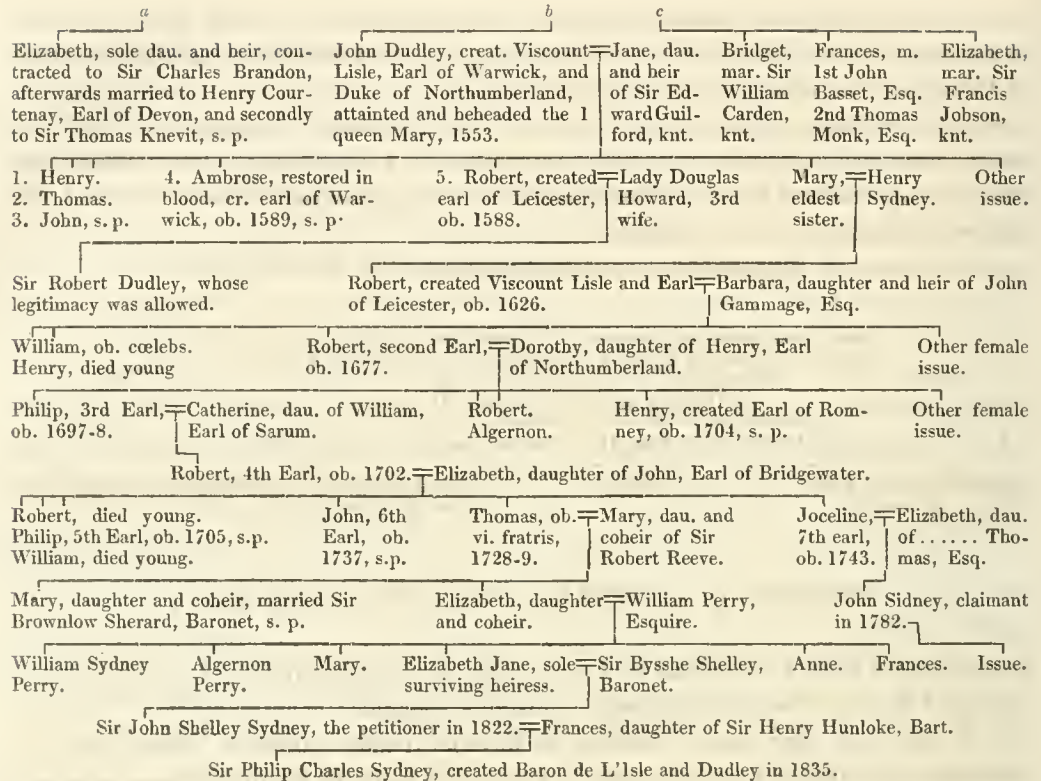 a b c
Elizabeth, sole dau. and heir, con-
tracted to Sir Charles Brandon,
afterwards married to Henry Cour-
tenay, Earl of Devon, and secondly
to Sir Thomas Knevit, s. p.
John Dudley, creat. Viscount
Lisle, Earl of Warwick, and
Duke of Northumberland,
attainted and beheaded the 1
queen Mary, 1553.
Jane, dau.
and heir
of Sir Ed-
ward Guil-
ford, knt.
Bridget,
mar. Sir
William
Carden,
knt.
Frances, m.
1st John
Basset, Esq.
2nd Thomas
Monk, Esq.
Elizabeth,
mar. Sir
Francis
Jobson,
knt.
1. Henry.
2. Thomas.
3. John, s. p.
4. Ambrose, restored in
blood, cr. earl of War-
wick, ob. 1589, s. p.
5. Robert, created
earl of Leicester,
ob. 1588.
Lady Douglas
Howard, 3rd
wife.
Mary,
eldest
sister.
Henry
Sydney.
Other
issue.
Sir Robert Dudley, whose
legitimacy was allowed.
Robert, created Viscount Lisle and Earl
of Leicester, ob. 1626.
Barbara, daughter and heir of John
Gammage, Esq.
William, ob. cœlebs.
Henry, died young
Robert, second Earl,
ob. 1677.
Dorothy, daughter of Henry, Earl
of Northumberland.
Other female
issue.
Philip, 3rd Earl,
ob. 1697-8.
Catherine, dau. of William,
Earl of Sarum.
Robert.
Algernon.
Henry, created Earl of Rom-
ney, ob. 1704, s. p.
Other female
issue.
Robert, 4th Earl, ob. 1702.
Elizabeth, daughter of John, Earl of Bridgewater.
Robert, died young.
Philip, 5th Earl, ob. 1705, s.p.
William, died young.
John, 6th
Earl, ob.
1737, s.p.
Thomas, ob.
vi. fratris,
1728-9.
Mary, dau. and
coheir of Sir
Robert Reeve.
Joceline,
7th earl,
ob. 1743.
Elizabeth, dau.
of ...... Tho-
mas, Esq.
Mary, daughter and coheir, married Sir
Brownlow Sherard, Baronet, s. p.
Elizabeth, daughter
and coheir.
William Perry,
Esquire.
John Sidney, claimant
in 1782.
William Sydney
Perry.
Algernon
Perry.
Mary.
Elizabeth Jane, sole
surviving heiress.
Sir Bysshe Shelley,
Baronet.
Anne.
Frances.
Issue.
Sir John Shelley Sydney, the petitioner in 1822.
Frances, daughter of Sir Henry Hunloke, Bart.
Sir Philip Charles Sydney, created Baron de L'Isle and Dudley in 1835.